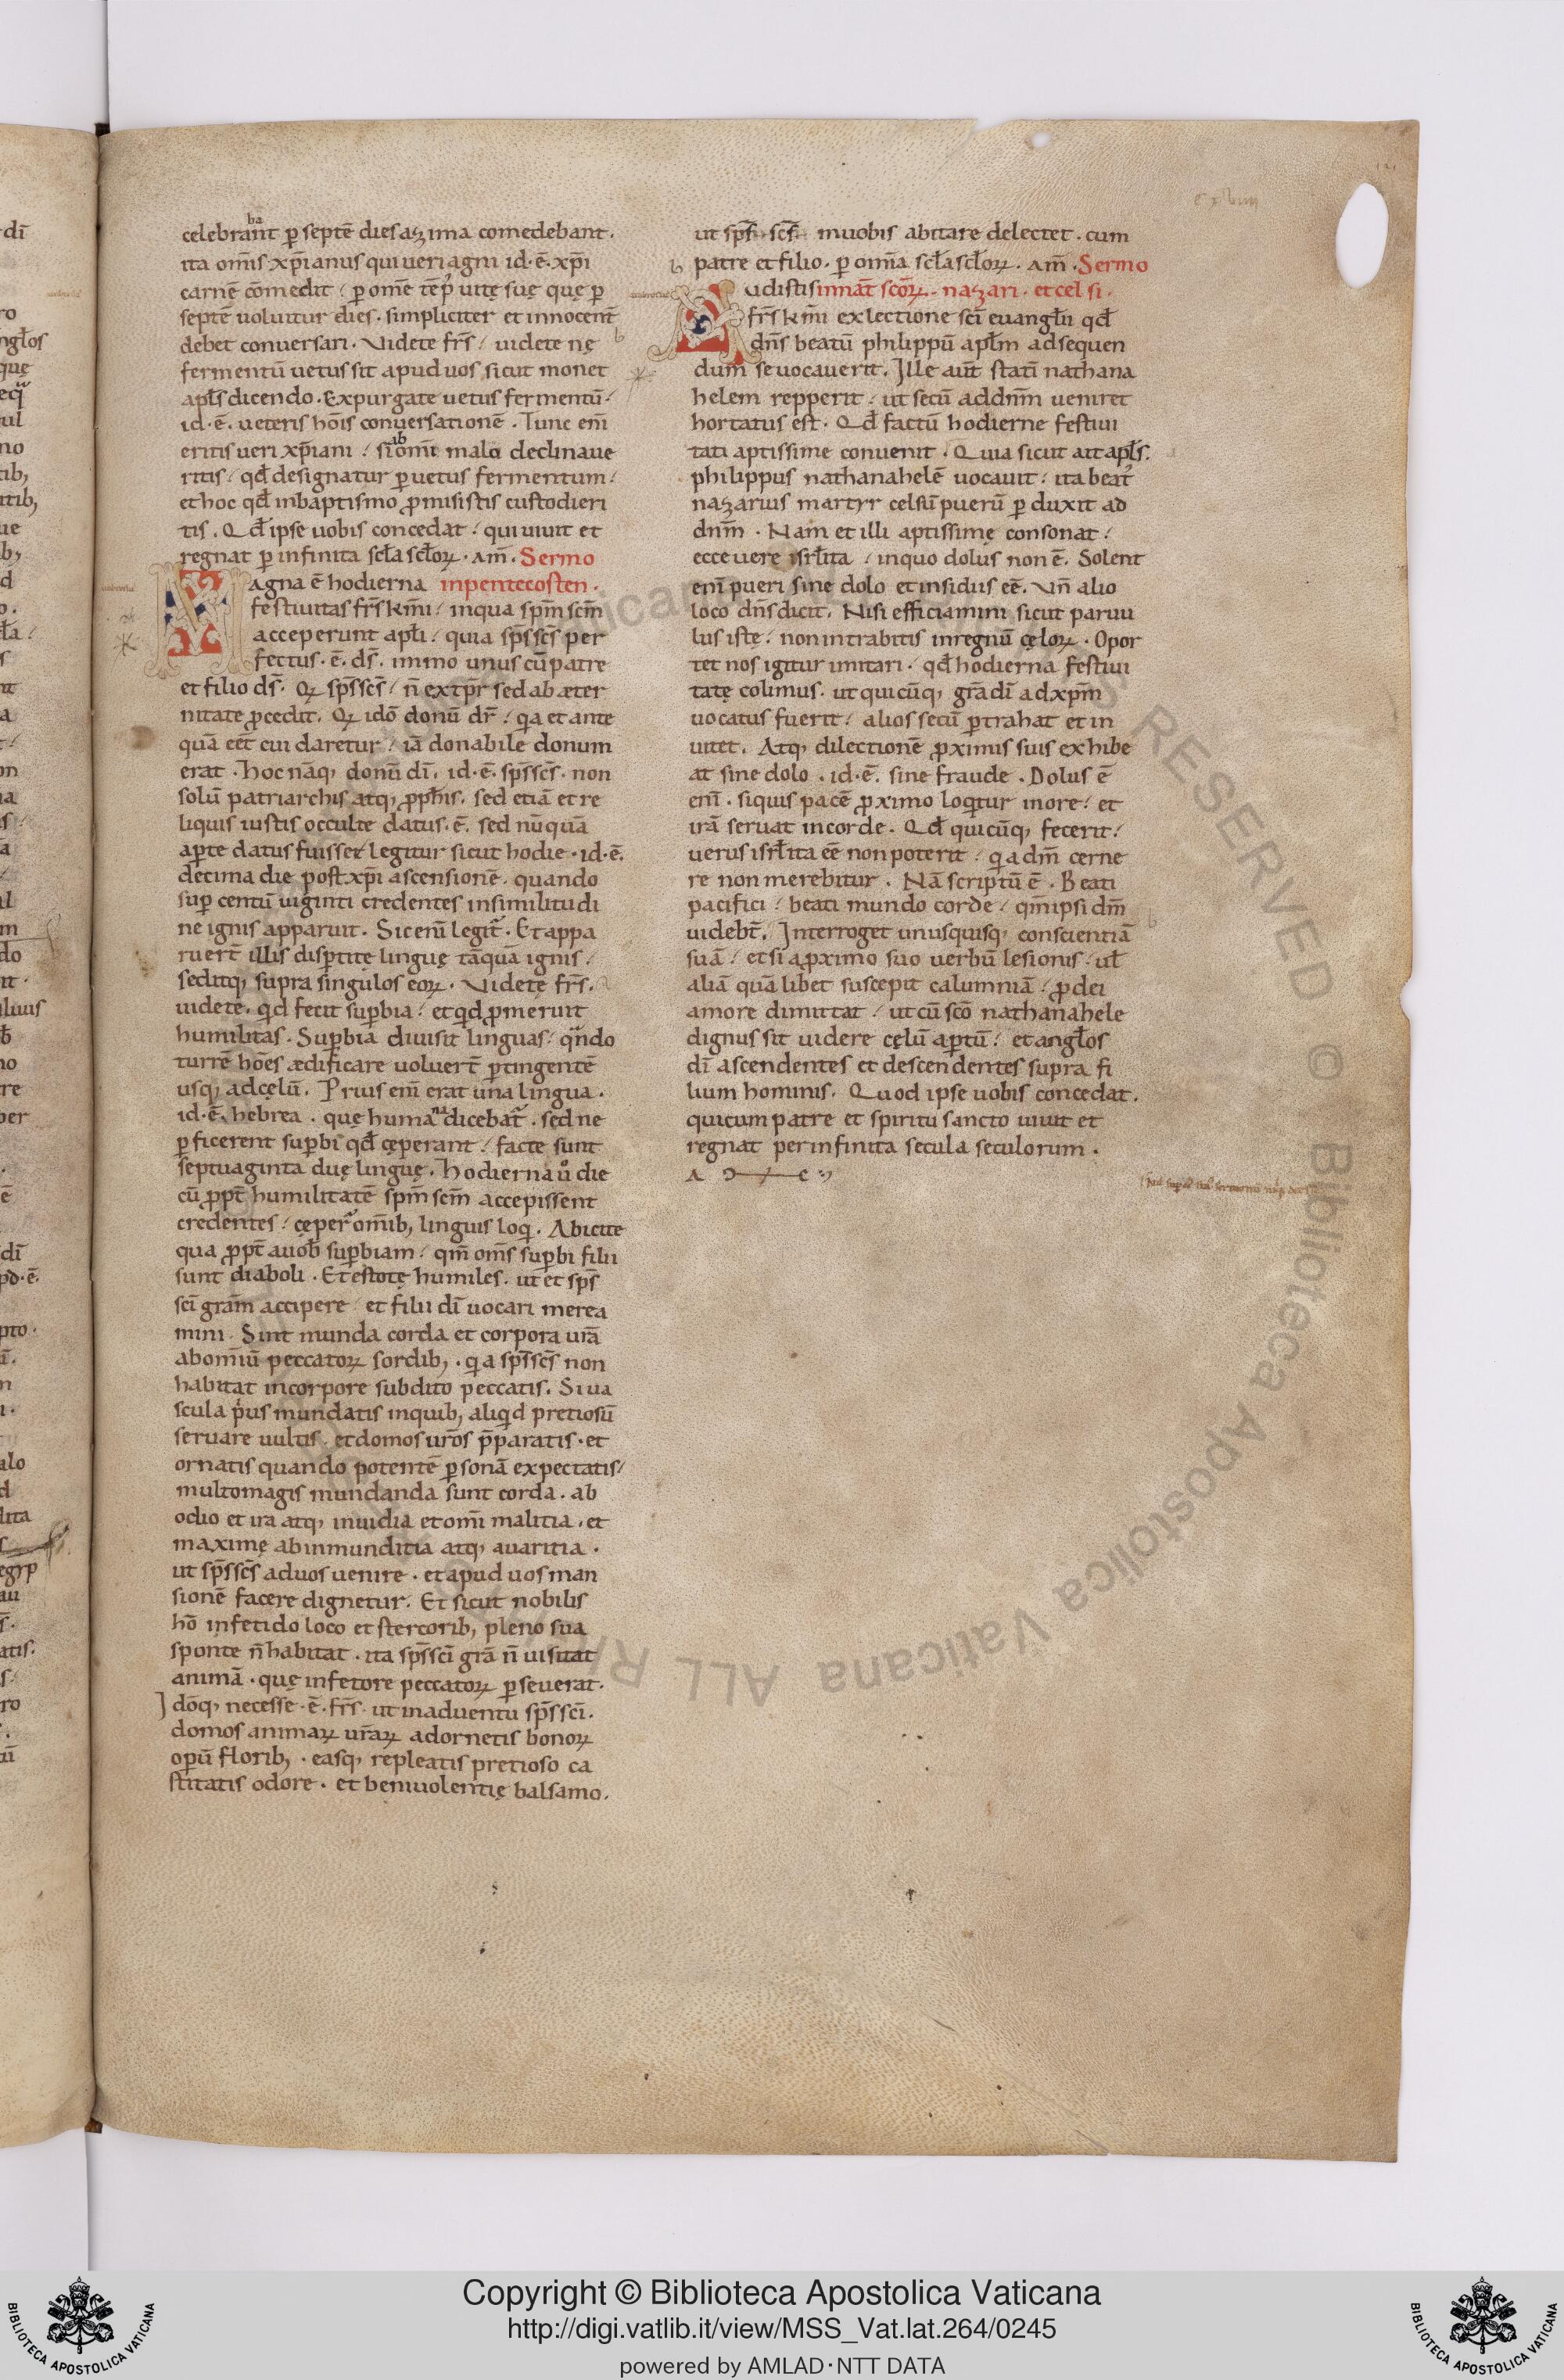 celebrabant ꝑ septē dies azima comedebant.
ita om̄is xp̄ianus qui ueri agni id·ē·xp̄i
carnē cōmedit / ꝑ om̄e tēp̄ uitę suę quę ꝑ
septē uoluitur dies · simpliciter et innocent̄
debet conuersari. Videte fr̄s / uidete nę
fermentū uetus sit apud uos sicut monet
apl̄s dicendo. Expurgate uetus fermentū/
id·ē· ueteris hōis conuersationē. Tunc eni᷎
eritis ueri xp̄iani / si ab om̄i malo declinaue
ritis / qđ designatur ꝑ uetus fermentum/
et hoc qđ in baptismo ꝓmisistis custodieri
tis. Qđ ipse uobis concedat / qui uiuit et
regnat ꝑ infinita scl̄a scl̄oꝝ. am̄. Sermo
in pentecosten.
Magna ē hodierna
festiuitas fr̄s km̄i / in qua sp̄m sc̄m
acceperunt apl̄i / quia sp̄s sc̄s per
fectus·ē·ds̄. immo unus cū patre
et filio ds̄. Qꝝ sp̄s sc̄s / n̄ ex tp̄r sed ab æter
nitate ꝓcedit. Qꝝ idō donū dr̄ / qa et ante
quā eēt cui daretur / iā donabile donum
erat. hoc nāq, donū dī. id·ē· sp̄s sc̄s. non
solū patriarchis atq, ꝓph̄is. sed etiā et re
liquis iustis occulte datus·ē. sed nūquā
aꝑte datus fuisse legitur sicut hodie·id·ē.
decima die post xp̄i ascensionē. quando
suꝑ centū uiginti credentes in similitudi
ne ignis apparuit. Sic enī legit᷑. Et appa
ruer̄t illis disꝑtitę linguę tāquā ignis/
seditq, supra singulos eoꝝ. Videtę fr̄s.
uidete. qd fecit suꝑbia / et qd ꝓmeruit
humilitas. Suꝑbia diuisit linguas / qn̄do
turrē hōes ædificare uoluer̄t ꝑtingentē
usq, ad cęlū. Prius enī erat una lingua.
id·ē· hebrea. quę humana dicebat᷑. sed ne
ꝑficerent suꝑbi qđ cęperant / facte sunt
septuaginta duę linguę. hodierna ů die
cū ꝓpt̄ humilitatē sp̄m sc̄m accepissent
credentes / cęper̄ om̄ib, linguis loq. Abicite
qua ꝓpt̄ a uob̄ suꝑbiam / qm̄ om̄s suꝑbi filii
sunt diaboli. Et estotę humiles. ut et sp̄s
sc̄i gram̄ accipere / et filii dī uocari merea
mini. Sint munda corda et corpora ur̄a
ab om̄iū peccatoꝝ sordib,. qa sp̄s sc̄s non
habitat in corpore subdito peccatis. Si ua
scula pͥus mundatis in quib, aliqd pretiosū
seruare uultis. et domos ur̄os p̄paratis. et
ornatis quando potentē ꝑsonā expectatis/
multo magis mundanda sunt corda. ab
odio et ira atq, inuidia et om̄i malitia. et
maximę ab inmunditia atq, auaritia.
ut sp̄s sc̄s ad uos uenire. et apud uos man
sionē facere dignetur. Et sicut nobilis
hō in fetido loco et stercorib, pleno sua
sponte n̄ habitat. ita sp̄s sc̄i gr̄a n̄ uisitat
animā. quę in fetore peccatoꝝ ꝑseuerat.
Idōq, necesse·ē· fr̄s. ut in aduentu sp̄s sc̄i.
domos animaꝝ ur̄aꝝ adornetis bonoꝝ
opū florib,. easq, repleatis pretioso ca
stitatis odore. et beniuolentię balsamo.
ut sp̄s sc̄s in uobis abitare delectet. cum
patre et filio. ꝑ om̄ia scl̄a scl̄oꝝ. am̄. Sermo
in nat̄ sc̄oꝝ. nazari. et celsi.
Audistis
fr̄s km̄i ex lectione sc̄i euangl̄ii qđ
dn̄s beatū philippū apl̄m ad sequen
dum se uocauerit. Ille aūt statī nathana
helem repperit / ut secū ad dn̄m ueniret
hortatus est. Qđ factū hodierne festiui
tati aptissime conuenit. Quia sicut ait apl̄s.
philippus nathanahelē uocauit / ita beat᷒
nazarius martyr celsū puerū ꝑduxit ad
dn̄m. Nam et illi aptissimę consonat/
ecce uere isrl̄ita / in quo dolus non ē. Solent
enī pueri sine dolo et insidiis eē. Vn̄ alio
loco dn̄s dicit. Nisi efficiamini sicut paruu
lus iste / non intrabitis in regnū cęloꝝ. Opor
tet nos igitur imitari. qđ hodierna festiui
tatę colimus. ut quicūq, gr̄a dī ad xp̄m
uocatus fuerit / alios secū ꝑtrahat et in
uitet. Atq, dilectionē ꝓximis suis exhibe
at sine dolo. id·ē. sine fraude. Dolus ē
enī. siquis pacē ꝓximo loqtur in ore / et
irā seruat in corde. Qđ quicūq, fecerit/
uerus isrl̄ita eē non poterit / qa dm̄ cerne
re non merebitur. Nā scriptū ē. Beati
pacifici / beati mundo corde / qm̄ ipsi dm̄
uidebt̄. Interroget unusquisq, conscientiā
suā / et si a ꝓximo suo uerbū lesionis / ul̄
aliā quā libet suscepit calumniā / ꝓ dei
amore dimittat / ut cū sc̄o nathanahele
dignus sit uidere cęlū aꝑtū / et angl̄os
dī ascendentes et descendentes supra fi
lium hominis. Quod ipse uobis concedat.
qui cum patre et spiritu sancto uiuit et
regnat per infinita secula seculorum.
Copyright © Biblioteca Apostolica Vaticana
http://digi.vatlib.it/view/MSS_Vat.lat.264/0245
powered by AMLAD·NTT DATA